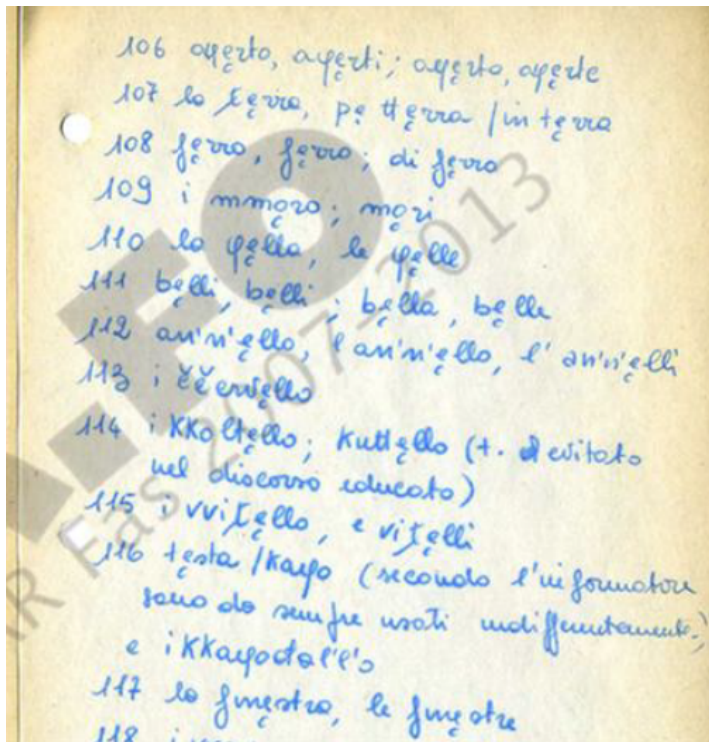 106 aφęrto, aφęrti; aφęrta, aφęrte
107 la ŧęrra, pę ttęrra / in tęrra
108 fęrro, fęrro; di fęrro
109 i mmǫro; mǫri
110 la φęlle, le φęlle
111 bęlli, bęlli; bęlla, bęlle
112 an'n'ęllo, l'an'n'ęllo, l'an'n'ęlli
113 i ččervęllo
114 i KKoltęllo; Kuttęllo (t. evitato
nel discorso educato)
115 i vviŧęllo, e viŧęlli
116 tęsta / Kaφo (secondo l'informatore
sono da sempre usati indifferentemente)
e i KKaφodal'l'o
117 la finęstra, le finęstre
118 i
R Fas 2007-2013